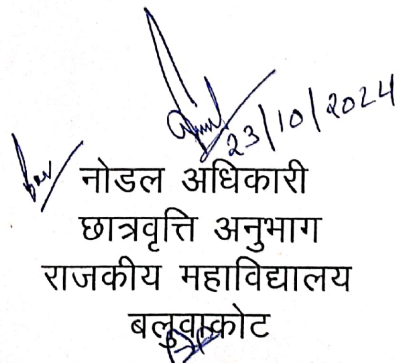 23/10/2024
नोडल अधिकारी
छात्रवृत्ति अनुभाग
राजकीय महाविद्यालय
बलुवाकोट